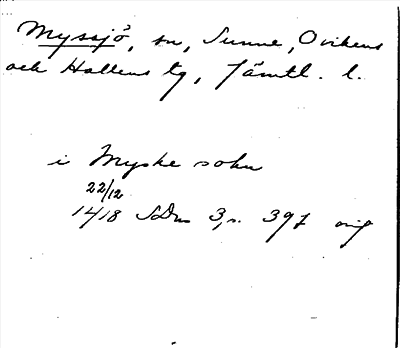 Myssjö, sn, Sunne, Ovikens
och Hallens tg, Jämtl. l.
i Myske sokn
22/12
1418 SDns 3, s. 397 orig